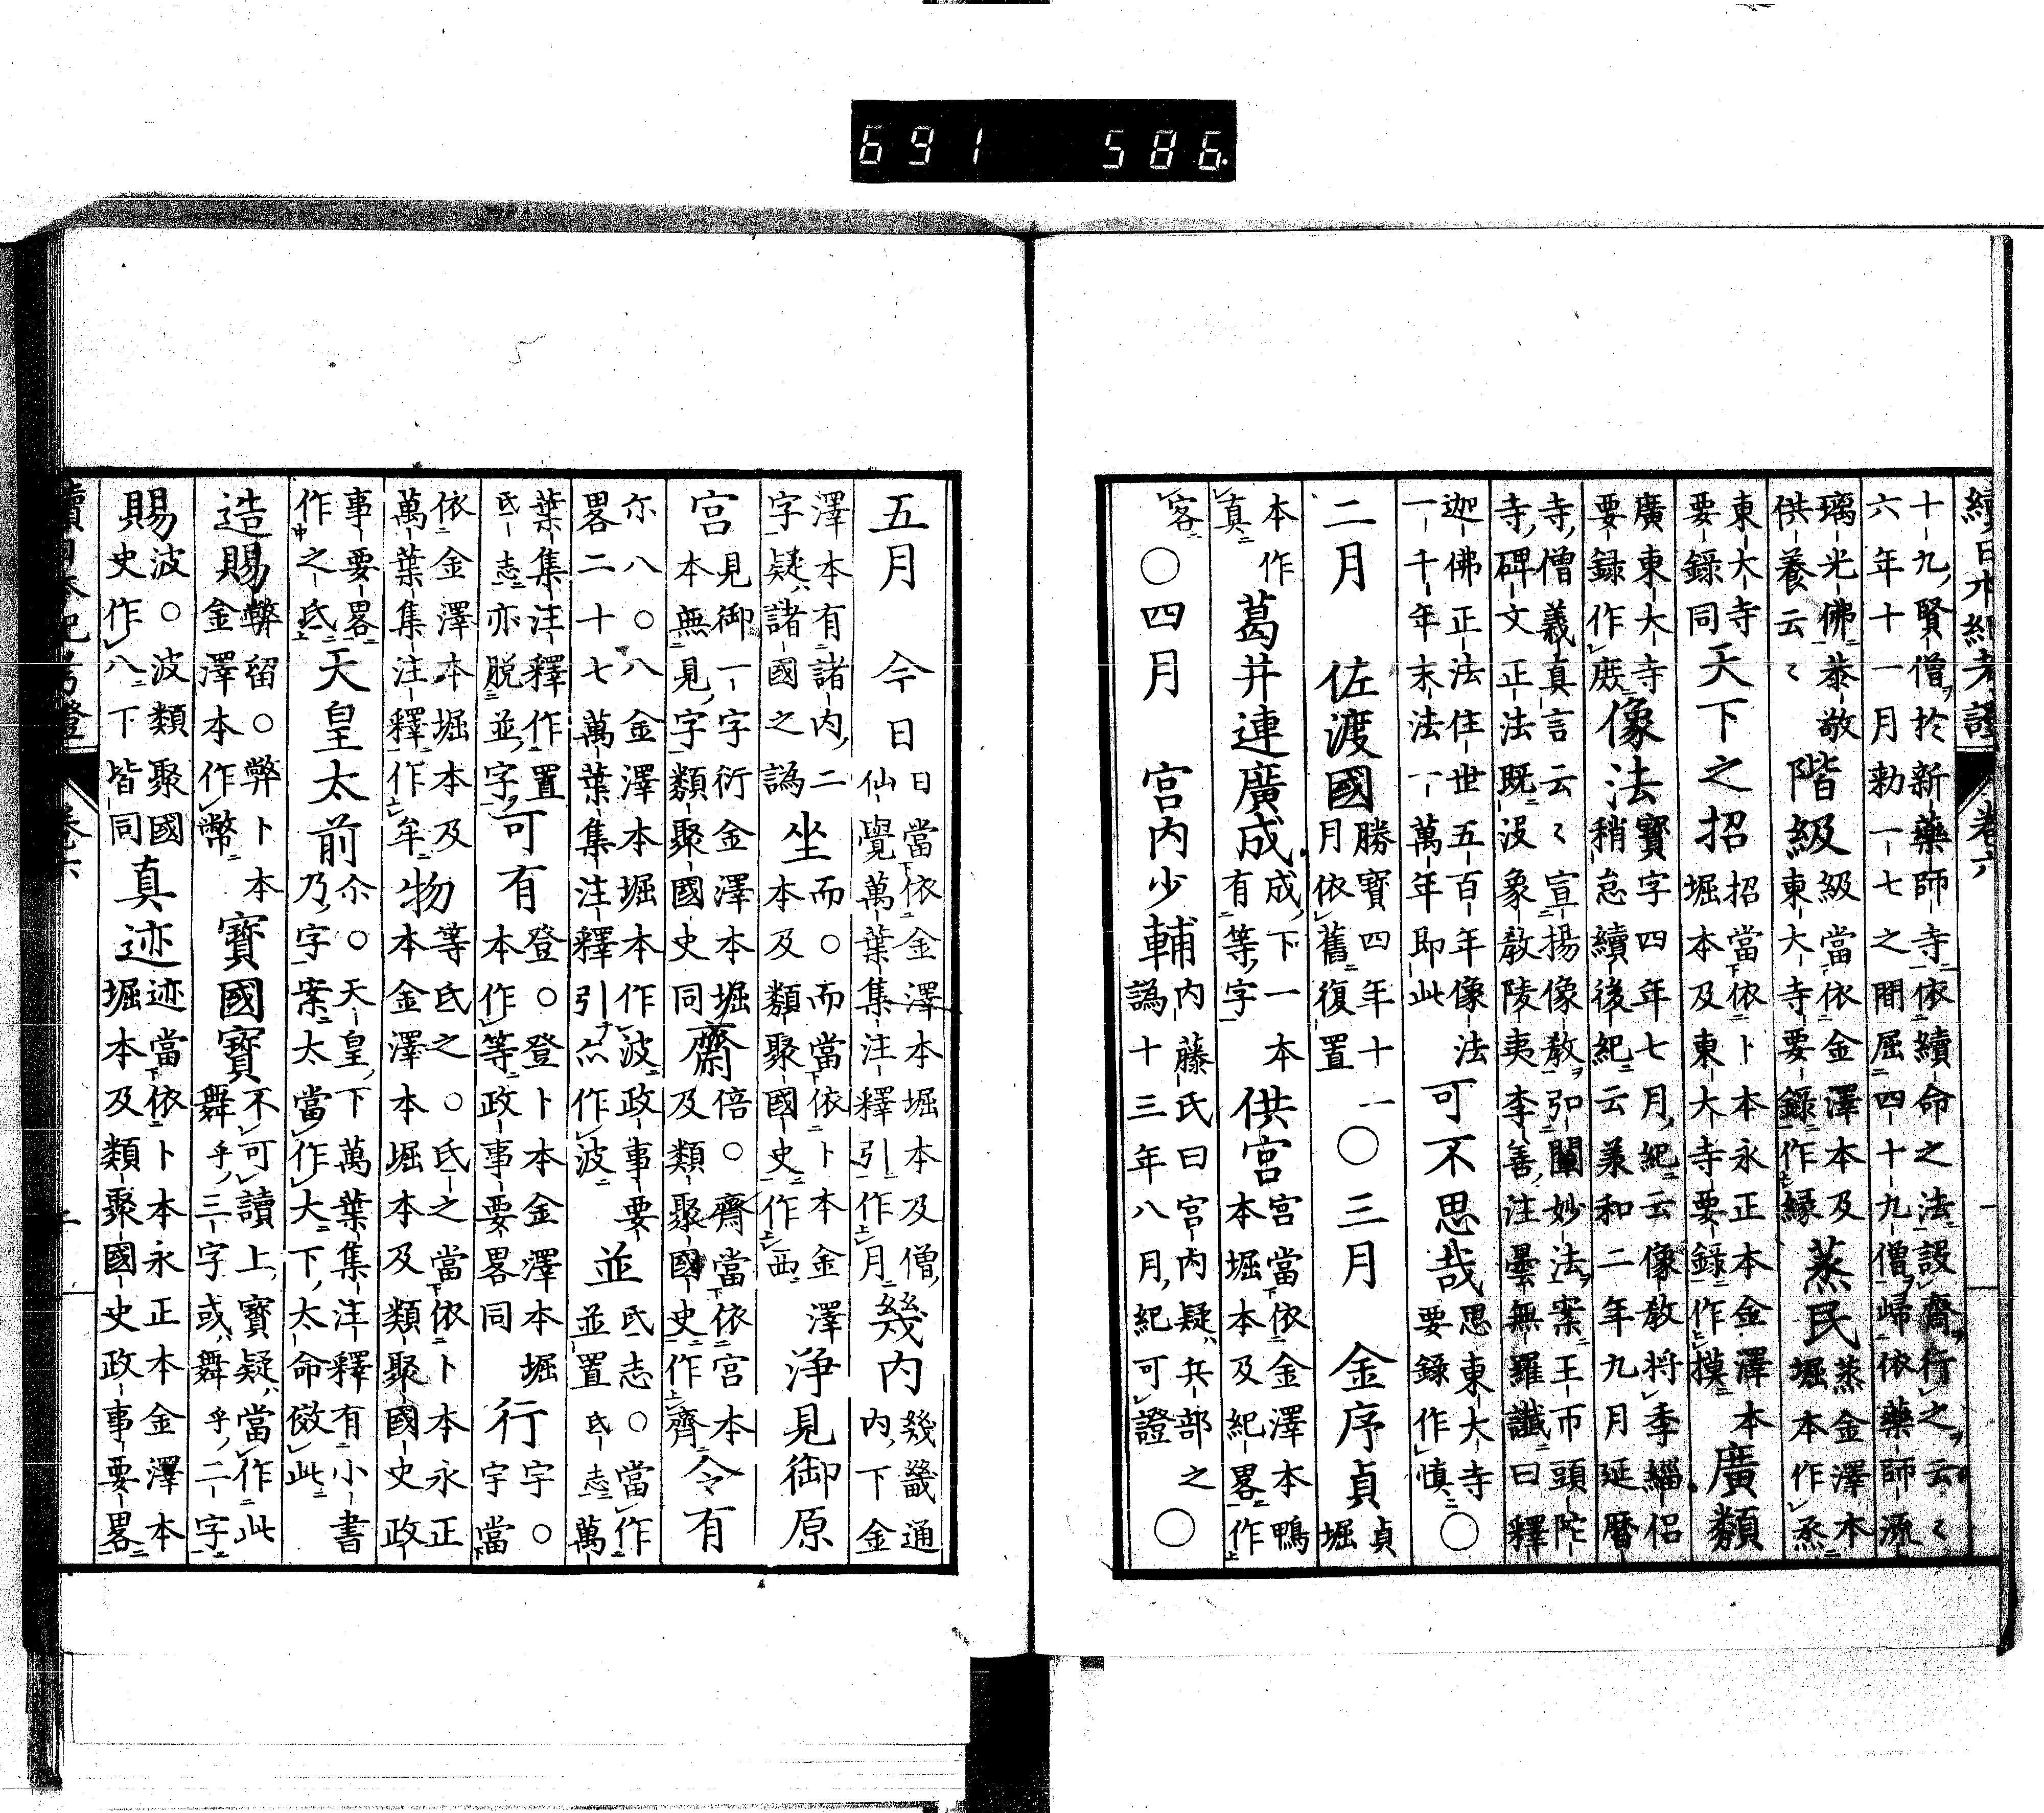 691 586
續日本紀考證 卷六 一
十九賢僧於新藥師寺依續命之法設齋行之云々
六年十一月勅一七之間屈四十九僧歸依藥師流
璃光佛恭敬
供養云々
階級
級當依金澤本及
東大寺要錄作縁
蒸民
蒸金澤本
堀本作烝
東大寺
要錄同
天下之招
招當依卜本永正本金澤本
堀本及東大寺要錄作摸
廣類
廣東大寺
要錄作庻
像法
寶字四年七月紀云像教将季緇侶
稍怠續後紀云羕和二年九月延曆
寺僧義真言云々宣揚像教弘闡妙法案王巾頭陀
寺碑文正法既沒象敎陵夷李善注曇無羅讖曰釋
迦佛正法住世五百年像法
一千年末法一萬年即此
可不思哉
思東大寺
要錄作慎
○
二月 佐渡國
勝寶四年十一
月依舊復置
○三月 金序貞
貞
堀
本作
真
葛井連廣成
成下一本
有等字
供宮
宮當依金澤本鴨
本堀本及紀畧作
客
○四月 宮内少輔
内藤氏曰宮内疑兵部之
譌十三年八月紀可證
○
五月 今日
日當依金澤本堀本及僧
仙覺萬葉集注釋引作月
幾内
幾畿通
内下金
澤本有諸内二
字疑諸國之譌
坐
而○而當依卜本金澤
本及類聚國史作西
淨見御原
宮
見御一字衍金澤本堀
本無見字類聚國史同
齋
倍○齋當依宮本
及類聚國史作齊
令有
尓八○八金澤本堀本作波政事要
畧二十七萬葉集注釋引尒作波
並
氐志○當作
並置氐志萬
葉集注釋作置
氐志亦脱並字
可有
登○登卜本金澤本堀
本作等政事要畧同
行
字○
字當
依金澤本堀本及
萬葉集注釋作牟
物
等氐之○氐之當依卜本永正
本金澤本堀本及類聚國史政
事要畧
作之氐
天皇太前
尒○天皇下萬葉集注釋有小書
乃字案太當作大下太命傚此
造賜
弊留○弊卜本
金澤本作幣
寶國寶
不可讀上寶疑當作此
舞乎三字或舞乎二字
賜
波○波類聚國
史作八下皆同
真迹
迹當依卜本永正本金澤本
堀本及類聚國史政事要畧